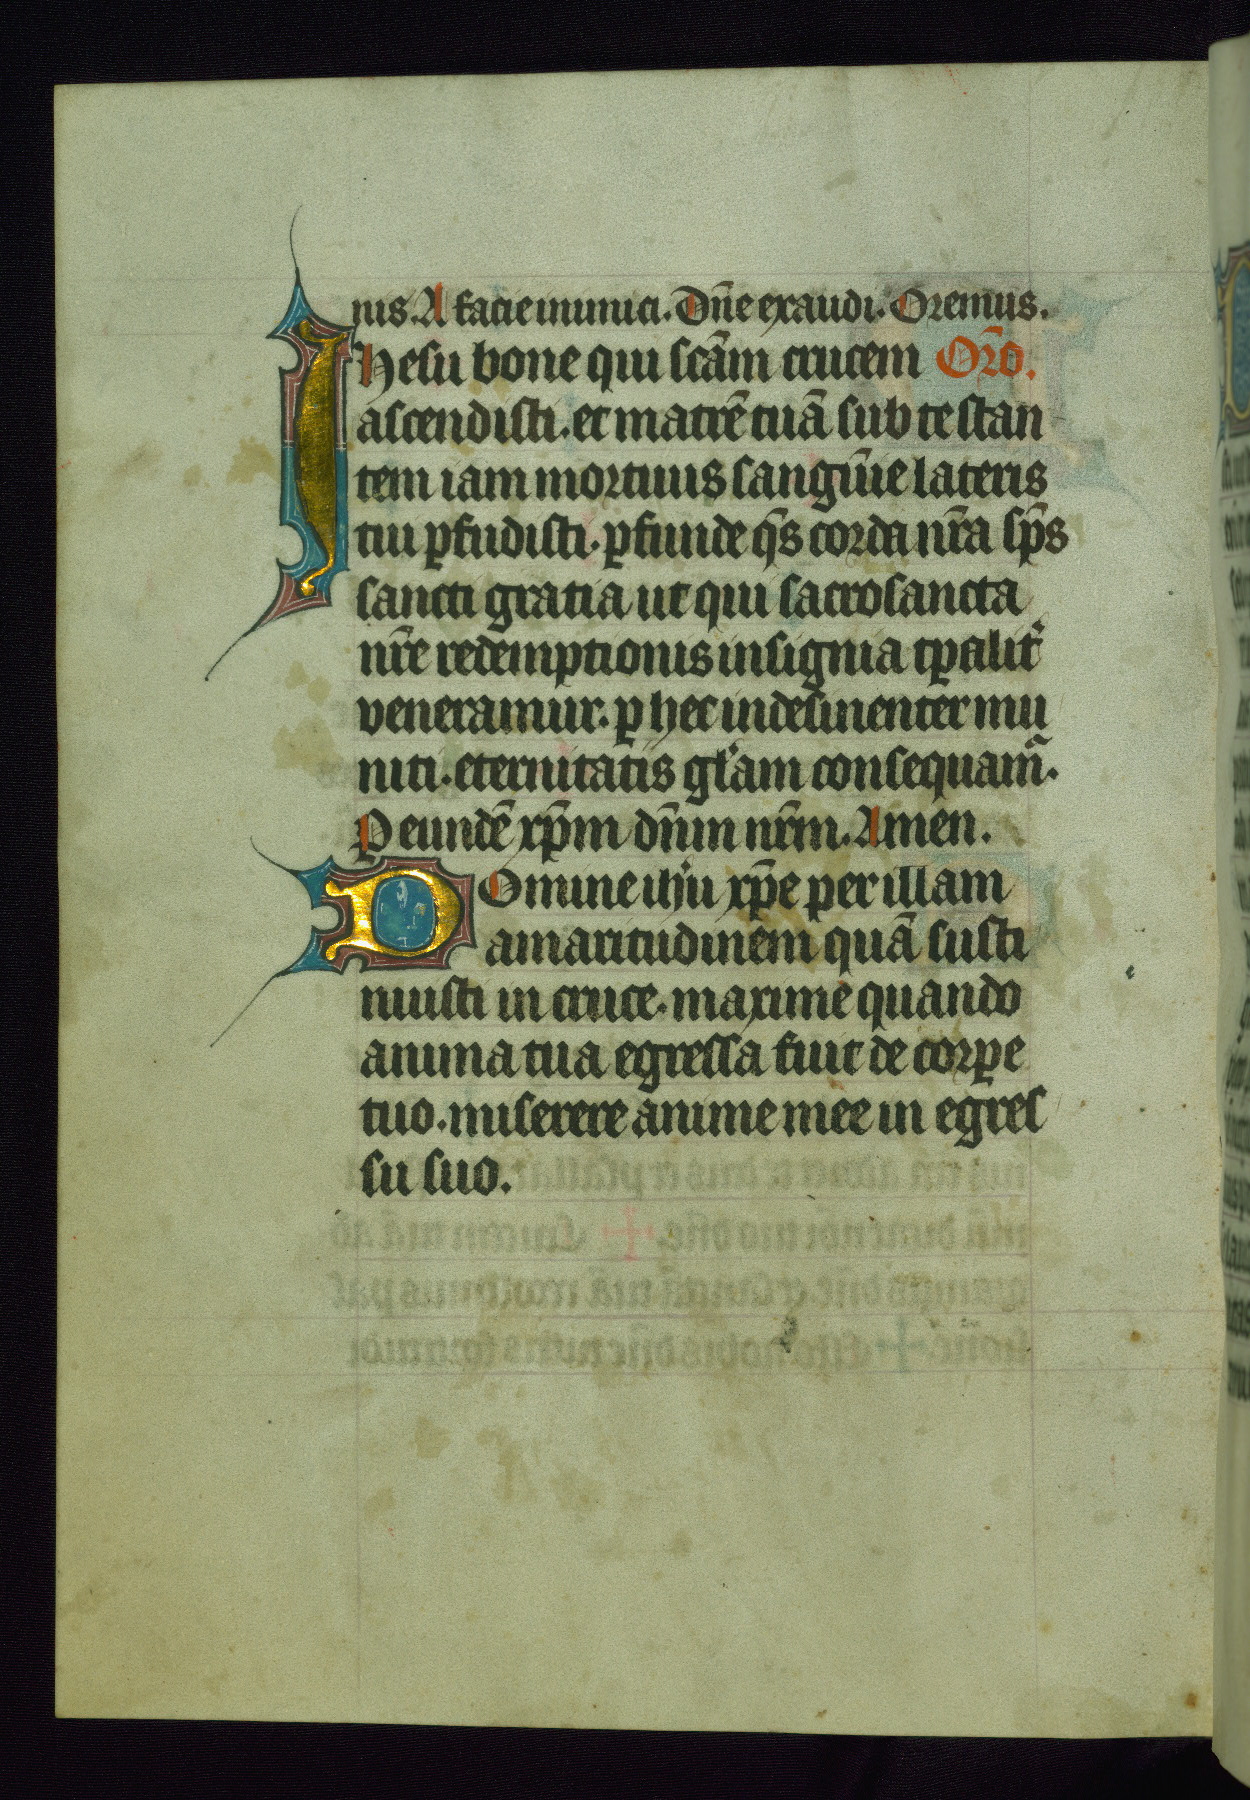 nis. A facie inimici. Dn̄e exaudi. Oremus.
Ihesu bone qui scām crucem Orō.
ascendisti. et matrē tuā sub te stan
tem iam mortuus sangūīe lateris
tui ꝑfudisti. ꝑfunde q̄s corda nr̄a sp̄s
sancti gratia ut qui sacrosancta
nr̄e redemptionis insignia tꝑalit᷑
veneramur. ꝑ hec indesinenter mu
niti. eternitatis gl̓am consequam᷑.
P eundē xp̄m dn̄m nr̄m. Amen.
Domine ih̓u xp̄e per illam
amaritudinem quā susti
nuisti in cruce. maxime quando
anima tua egressa fuit de corꝑe
tuo. miserere anime mee in egres
su suo.